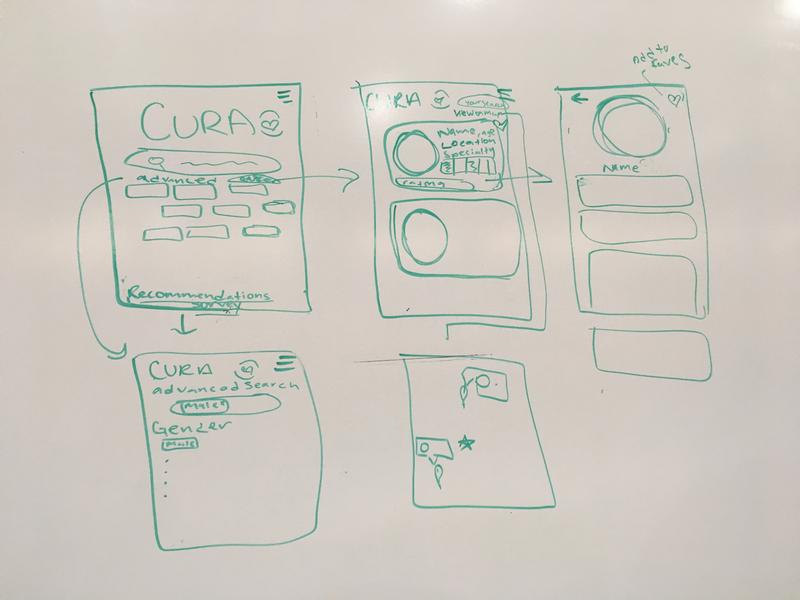 CURA
advanced
Recommendations
survey
CURA
your search
view on map
Name, age
Location
Specialty
rating
Add to
saves
Name
CURA
advanced search
Male x
Gender
Male